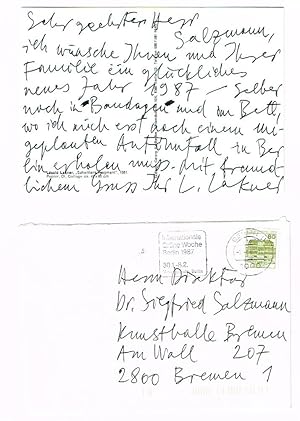 Sehr geehrter Herr
Salzmann,
ich wünsche Ihnen und Ihrer
Familie ein glückliches
neues Jahr 1987 – Selber
noch in Bandagen und im Bett,
wo ich mich erst nach einem un-
geplanten Autounfall in Ber-
lin erholen muss. Mit freund-
lichem Gruss Ihr L. Lakner
Internationale
Grüne Woche
Berlin 1987
30.1.-8.2.
Berlin
80
Herrn Direktor
Dr. Siegfried Salzmann
Kunsthalle Bremen
Am Wall 207
2800 Bremen 1